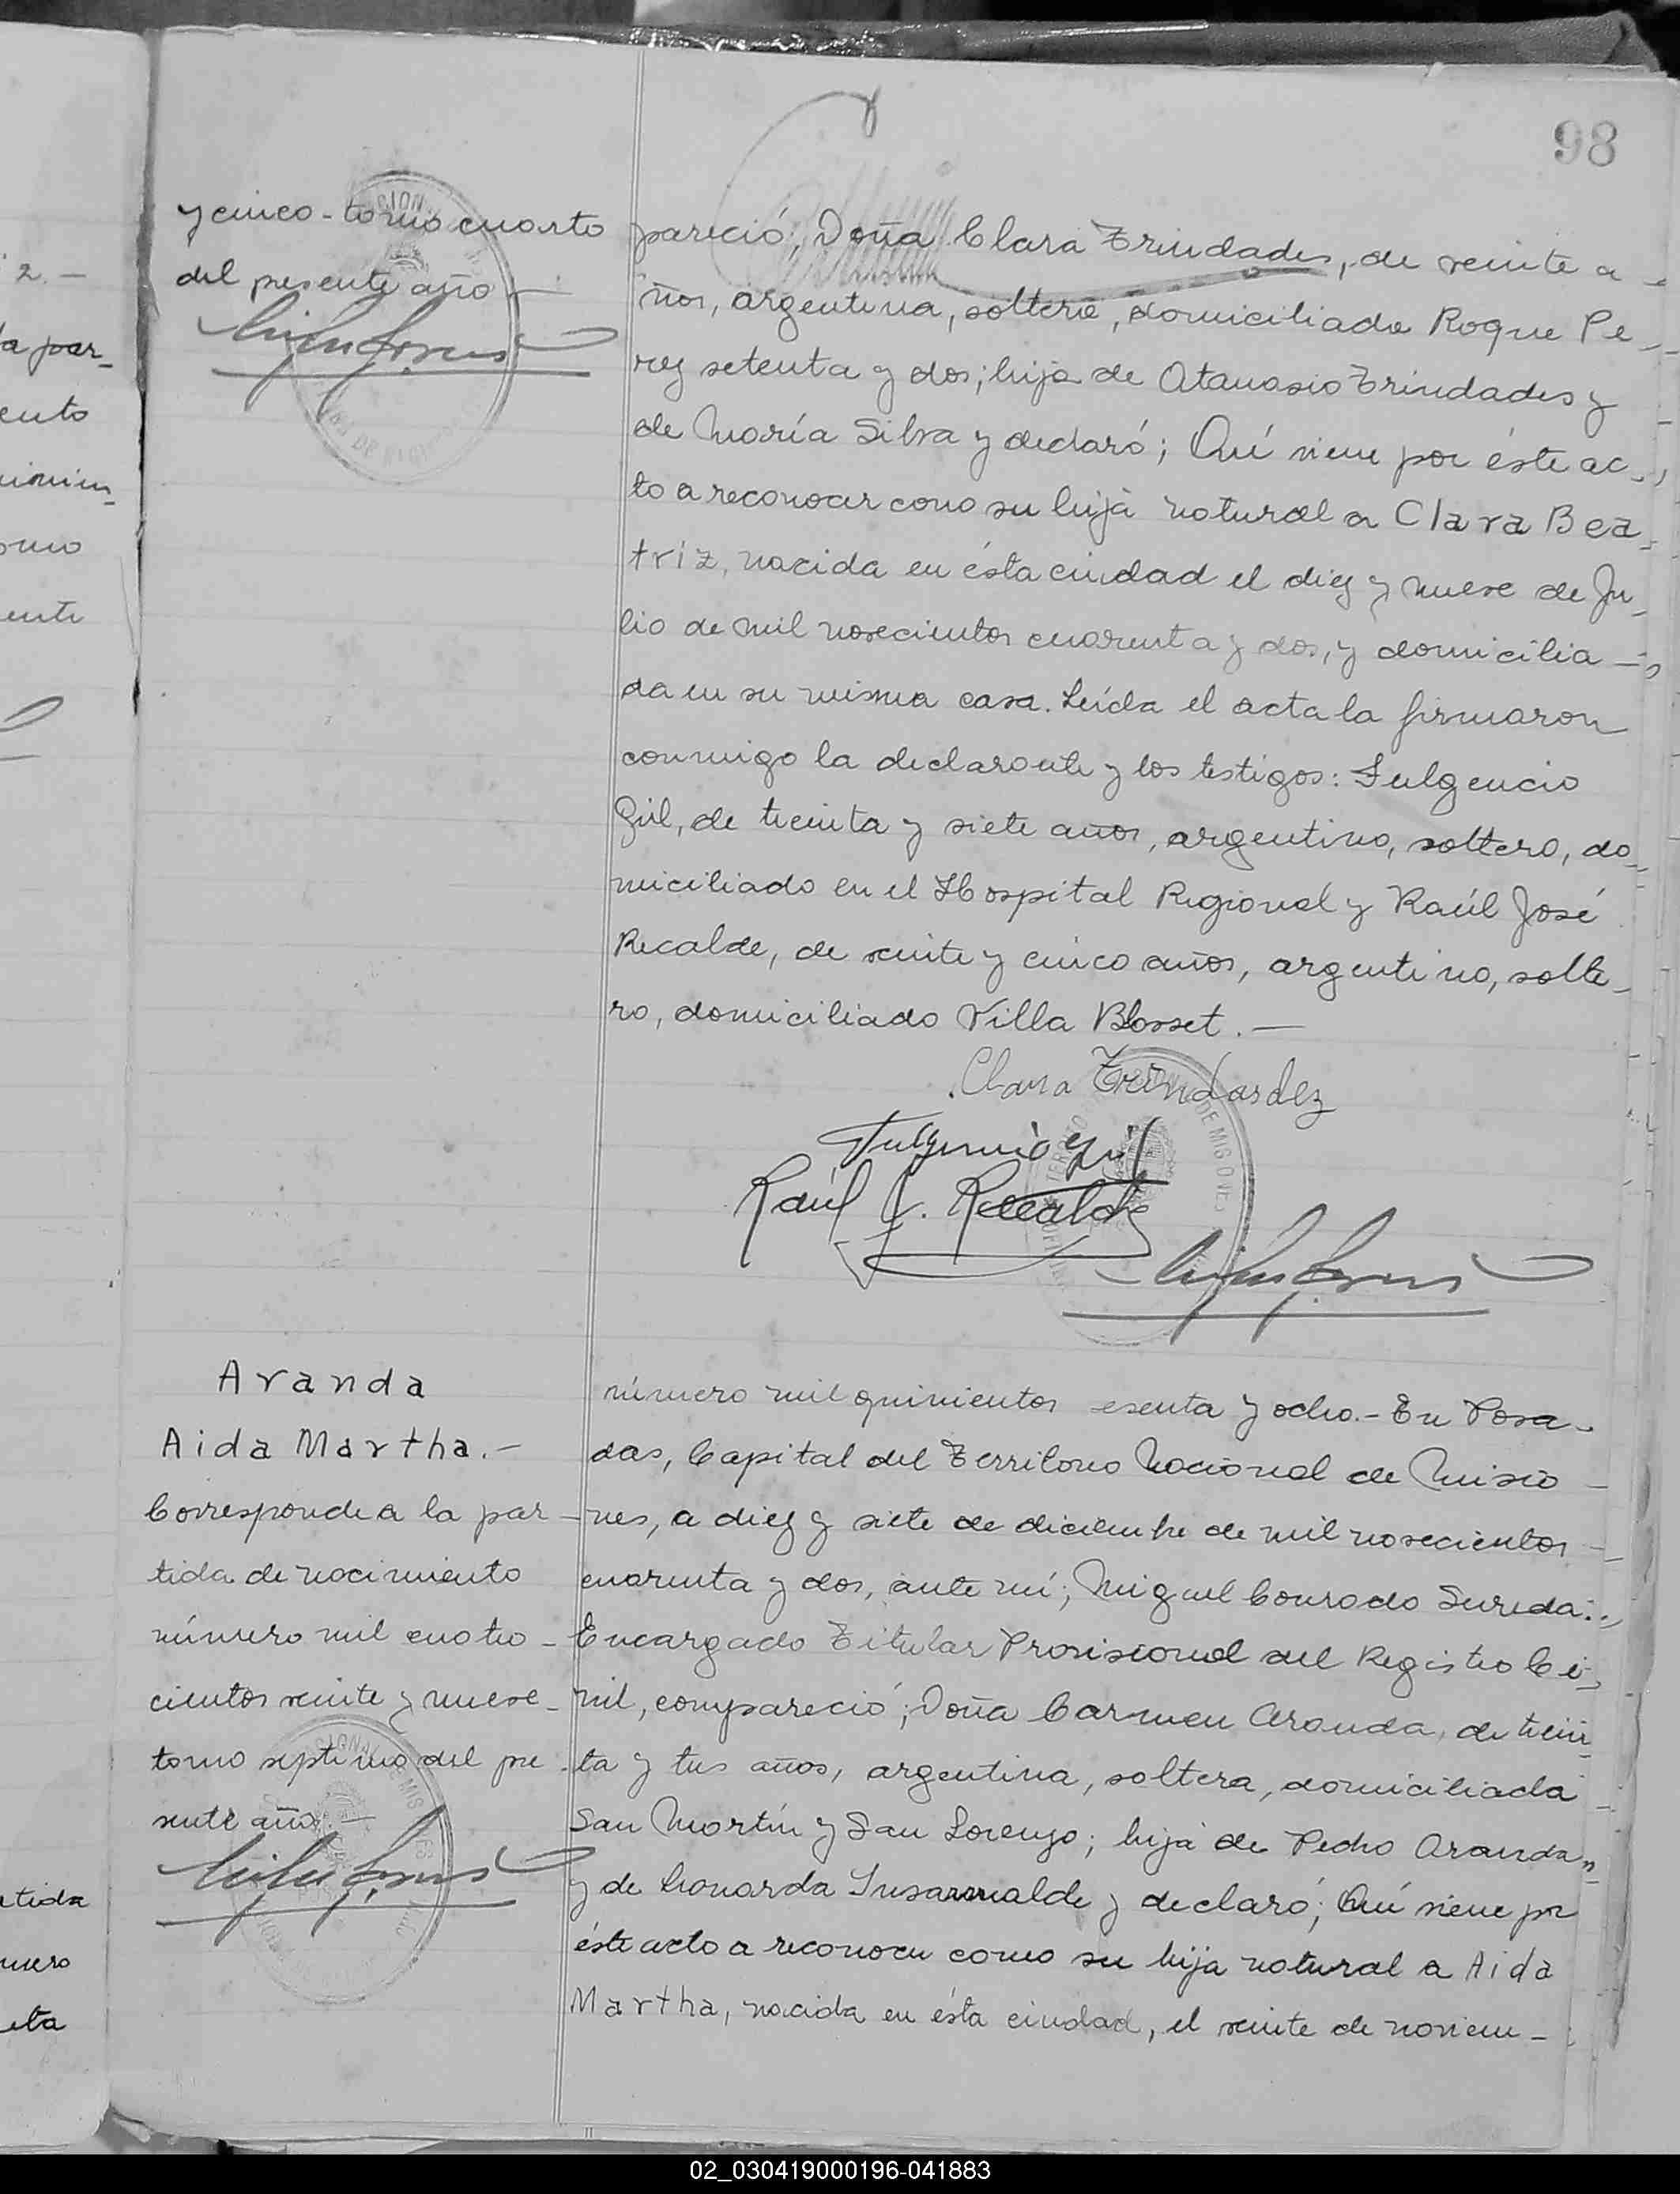 98
y cinco - tomo cuarto
del presente año -
pareció, Doña Clara Trindades, de veinte a-
ños, argentina, soltera, domiciliada Roque Pe-
rez setenta y dos; hija de Atanasio Trindades y
de María Silva y declaró; Qué viene por éste ac-
to a reconocer como su hija natural a Clara Bea-
triz, nacida en ésta ciudad el diez y nueve de Ju-
lio de mil novecientos cuarenta y dos, y domicilia-
da en su misma casa. Leída el acta la firmaron
conmigo la declarante y los testigos: Fulgencio
Gil, de treinta y siete años, argentino, soltero, do-
miciliado en el Hospital Regional y Raúl José
Recalde, de veinte y cinco años, argentino, solte-
ro, domiciliado Villa Blosset. -
Clara Trindasdez
Fulgencio Gil
Raúl J. Recalde
Aranda
Aida Martha. -
Corresponde a la par-
tida de nacimiento
número mil cuatro-
cientos veinte y nueve-
tomo septimo del pre-
sente año. -
número mil quinientos esenta y ocho. - En Posa-
das, Capital del Territorio Nacional de Misio-
nes, a diez y siete de diciembre de mil novecientos
cuarenta y dos, ante mí; Miguel Conrado Sureda:
Encargado Titular Provisional del Registro Ci-
vil, compareció; Doña Carmen Aranda, de trein-
ta y tres años, argentina, soltera, domiciliada
San Martín y San Lorenzo; hija de Pedro Aranda
y de Leonarda y declaró; Qué viene por
éste acto a reconocer como su hija natural a Aida
Martha, nacida en ésta ciudad, el veinte de noviem-
2. -
a par-
ento
imien-
omo
ente
rtida
mero
eta
02_030419000196-041883